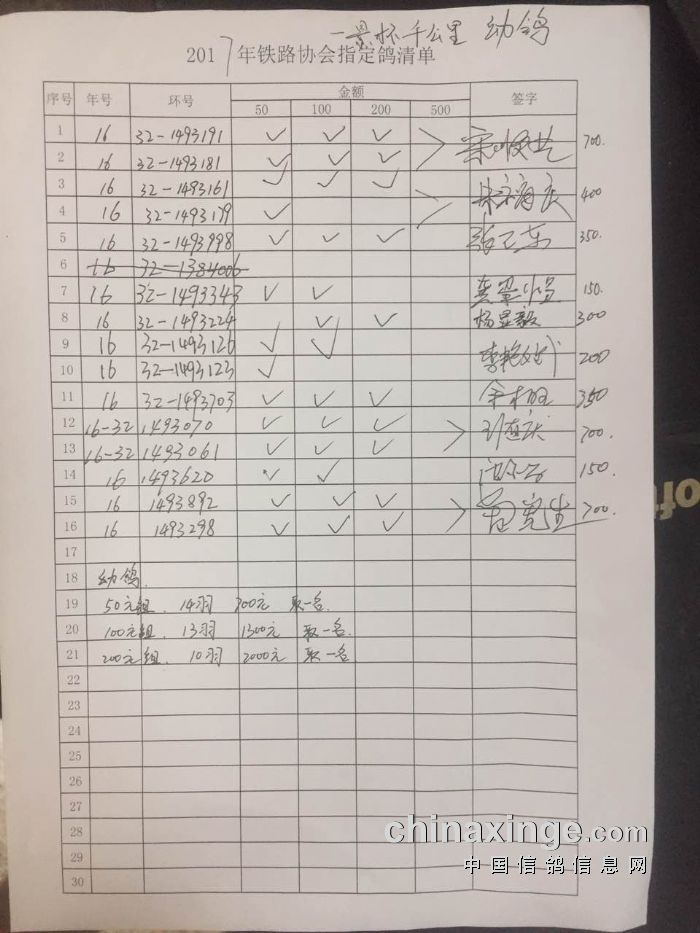 一景杯千公里 幼鸽
2017年铁路协会指定鸽清单
序号 年号 环号 金额 签字
50 100 200 500
1 16 32-1493191 ✓ ✓ ✓ 700.
2 16 32-1493181 ✓ ✓ ✓
3 16 32-1493161 ✓ ✓ ✓ 400
4 16 32-1493179 ✓
5 16 32-1493998 ✓ ✓ ✓ 350.
6 16 32-1384006
7 16 32-1493343 ✓ ✓ 150.
8 16 32-1493224 ✓ ✓ 杨显毅 300
9 16 32-1493126 ✓ ✓ 200
10 16 32-1493123 ✓
11 16 32-1493703 ✓ ✓ ✓ 350
12 16-32 1493070 ✓ ✓ ✓ 700.
13 16-32 1493061 ✓ ✓ ✓
14 16 1493620 ✓ ✓ 150.
15 16 1493892 ✓ ✓ ✓ 700.
16 16 1493298 ✓ ✓ ✓
17
18 幼鸽.
19 50元组. 14羽 700元 取一名.
20 100元组. 13羽 1300元 取一名.
21 200元组. 10羽 2000元 取一名
22
23
24
25
26
27
28
29
30
oft
chinaxinge.com
中国信鸽信息网